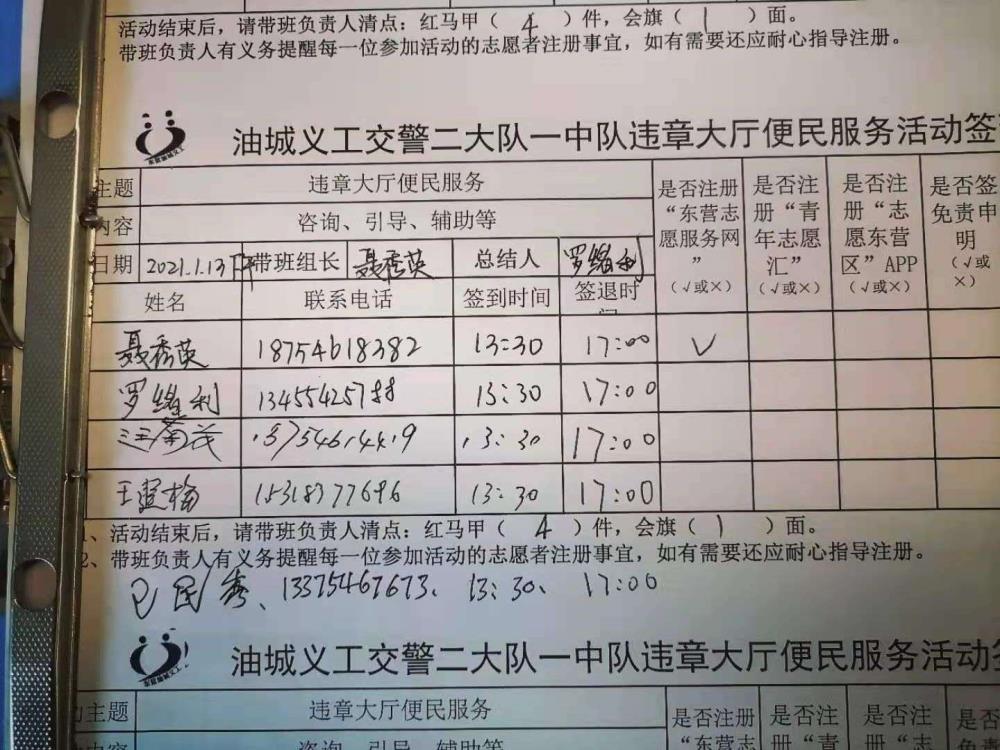 活动结束后，请带班负责人清点：红马甲（ 4 ）件，会旗（ 1 ）面。
带班负责人有义务提醒每一位参加活动的志愿者注册事宜，如有需要还应耐心指导注册。
油城义工交警二大队一中队违章大厅便民服务活动签
主题 违章大厅便民服务 是否注册“东营志愿服务网”（√或×） 是否注册“青年志愿汇”（√或×） 是否注册“志愿东营区”APP（√或×） 是否签免责申明（√或×）
内容 咨询、引导、辅助等
日期 2021.1.13下午 带班组长 聂秀英 总结人 罗维利
姓名 联系电话 签到时间 签退时间
聂秀英 18754618382 13:30 17:00 √
罗维利 13455425788 13:30 17:00
13754614419 13:30 17:00
王 梅 15318377696 13:30 17:00
1、活动结束后，请带班负责人清点：红马甲（ 4 ）件，会旗（ 1 ）面。
2、带班负责人有义务提醒每一位参加活动的志愿者注册事宜，如有需要还应耐心指导注册。
民秀、13375467673、13:30、17:00
油城义工交警二大队一中队违章大厅便民服务活动签
主题 违章大厅便民服务 是否注册“东营志 是否注册“青 是否注册“志 是否
内容 咨询、引导、辅助等